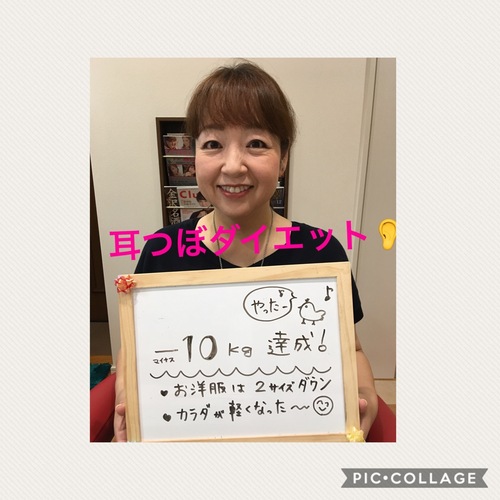 耳つぼダイエット👂
やったー
ー10kg 達成!
マイナス
♥お洋服は2サイズダウン
♥カラダが軽くなった〜
PIC•COLLAGE